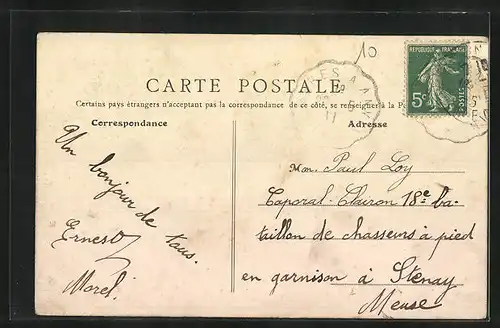 10
RÉPUBLIQUE FRANÇAISE
5c
POSTES
CARTE POSTALE
Certains pays étrangers n'acceptant pas la correspondance de ce côté, se renseigner à la
Correspondance
Adresse
Un bonjour de tous.
Ernest
Morel
Mon. Paul Loy
Caporal-Clairon 18e ba-
taillon de chasseurs à pied
en garnison à Stenay
Meuse